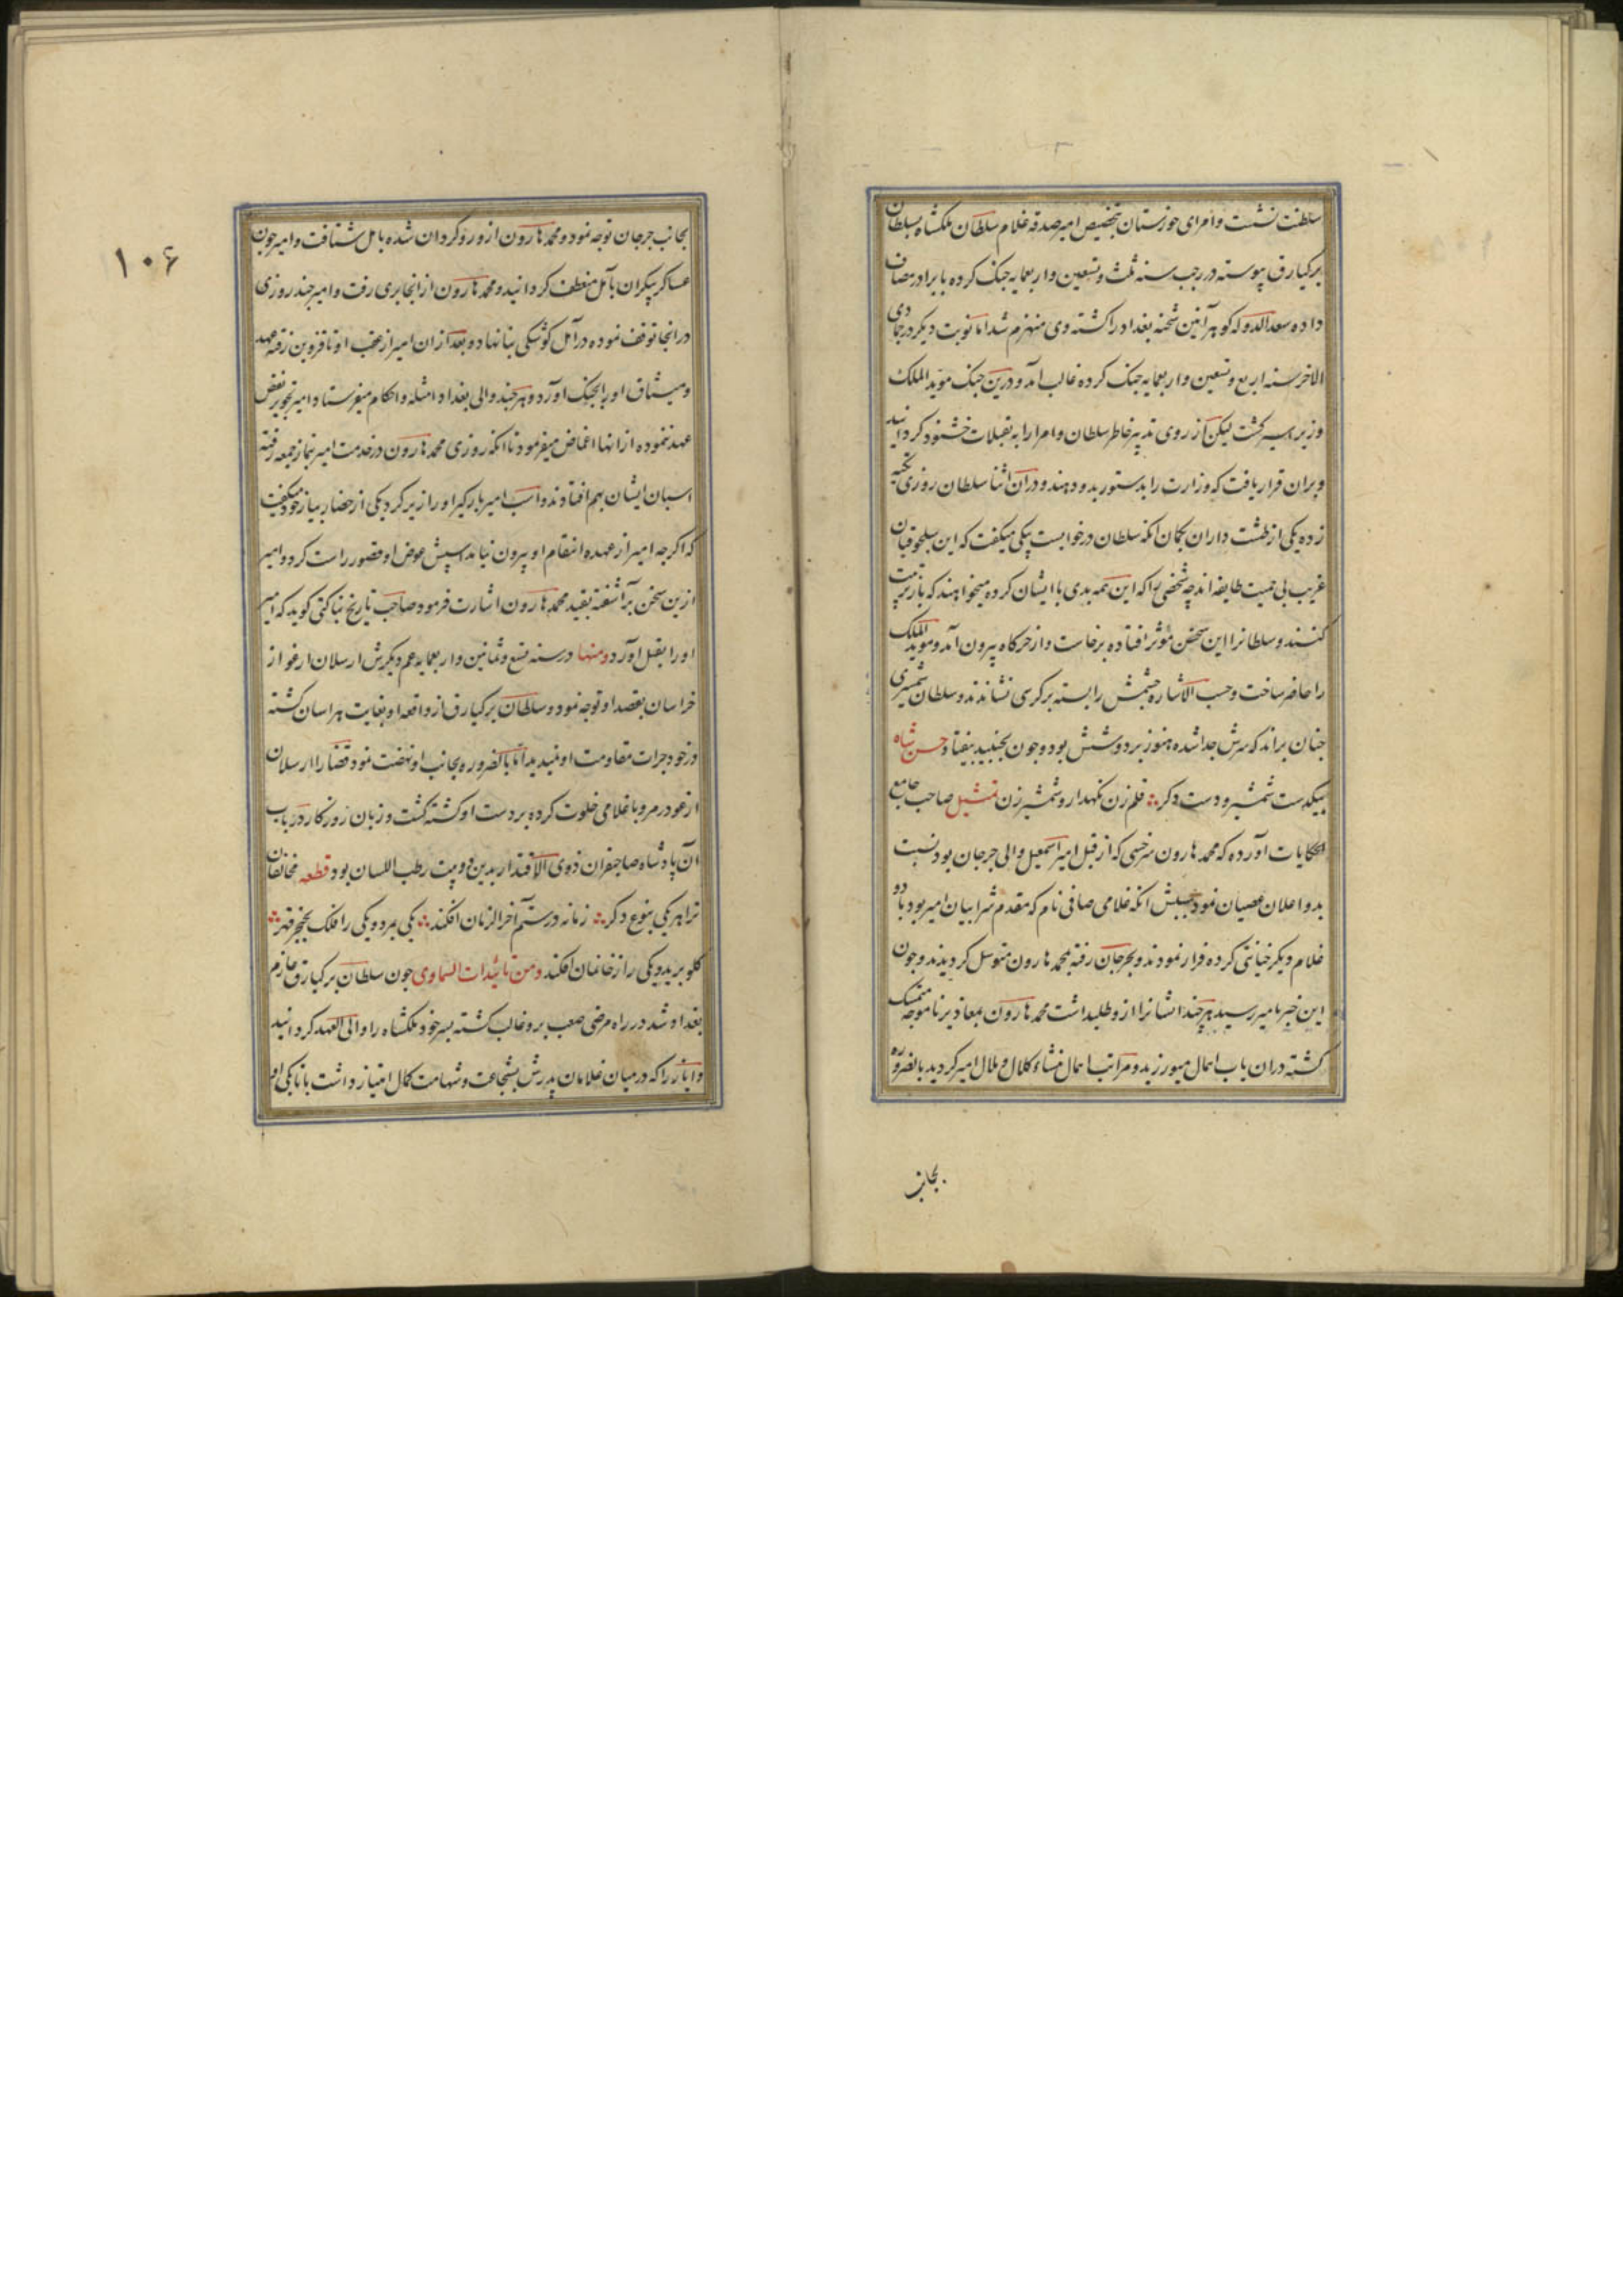 سلطنت نشست و امرای خوزستان بتخصیص امیر صدقه غلام سلطان ملکشاه بسلطان
برکیارق پیوسته در رجب سنه ثلث و تسعین و اربعمایه جنک کرده با برادر مصاف
داده سعد الدوله کوهرآئین شحنه بغداد را کشته وی منهزم شد اما نوبت دیکر در جمادی
الاخر سنه اربع و تسعین و اربعمایه جنک کرده غالب آمد و درین جنک موید الملک
وزیر اسیر کشت لیکن از روی تدبیر خاطر سلطان و امرا را به تقبلات خشنود کردانید
و بران قرار یافت که وزارت را بدستور بدو دهند و دران اثنا سلطان روزی تکیه
زده یکی از طشت داران بکمان آنکه سلطان در خوابست بیکی میکفت که این سلجوقیان
غریب بی حمیت طایفه اند چه شخصی را که این همه بدی با ایشان کرده میخواهند که باز تربیت
کنند و سلطانرا این سخن موثر افتاده برخاست و از خرکاه بیرون آمد و موید الملک
را حاضر ساخت و حسب الاشاره چشمش را بسته بر کرسی نشاندند و سلطان شمشیری
جنان براند که سرش جدا شده هنوز بر دوشش بود و جون بجنبید بیفتاد حسن شاه
بیکدست شمشیر و دست دکر ∴ قلم زن نکهدار و شمشیر زن تمثیل صاحب جامع
الحکایات آورده که محمد هارون سرخسی که از قبل امیر اسمعیل والی جرجان بود نسبت
بدو اعلان عصیان نمود سببش آنکه غلامی صافی نام که مقدم شرابیان امیر بود با دو
غلام دیکر خیانتی کرده فرار نمودند و بجرجان رفته بمحمد هارون متوسل کردیدند و جون
این خبر بامیر رسید هر چند ایشانرا ازو طلبداشت محمد هارون بمعاذیر ناموجه متمسک
کشته دران باب اهمال میورزید و مراتب اهمال منشاء کلال و ملال امیر کردید بالضروره
بجانب
۱۰۶
بجانب جرجان توجه نمود و محمد هارون ازو روکردان شده بآمل شتافت و امیر جون
عساکر بیکران بآمل منعطف کردانید و محمد هارون از انجا بری رفت و امیر چند روزی
در انجا توقف نموده در آمل کوشکی بنا نهاد و بعد ازان امیر از عقب او تا قزوین رفته بعهد
و میثاق او را بچنک آورد و هر چند والی بغداد امثله و احکام میفرستاد امیر تجویز نقض
عهد ننموده از انها اغماض میفرمود تا انکه روزی محمد هارون در خدمت امیر بنماز جمعه رفته
اسبان ایشان بهم افتادند و اسب امیر بارکیر او را زیر کرد یکی از حضار بیار خود میکفت
که اکر چه امیر از عهده انتقام او بیرون نیامد اسپش عوض او قصور راست کرد و امیر
ازین سخن برآشفته بقید محمد هارون اشارت فرمود صاحب تاریخ بناکتی کوید که امیر
او را بقتل آورد و منها در سنه تسع و ثمانین و اربعمایه عم دیکرش ارسلان ارغو از
خراسان بقصد او توجه نمود و سلطان برکیارق از واقعه او بغایت هراسان کشته
و زخود جرات مقاومت او نمیدید اما بالضروره بجانب او نهضت نمود قضا را ارسلان
ارغو در مرو با غلامی خلوت کرده بر دست او کشته کشت و زبان روزکار در باب
آن پادشاه صاحبقران ذوی الاقتدار بدین دو بیت رطب اللسان بود قطعه مخالفان
ترا هر یکی بنوع دکر ∴ زمانه در ستم آخر الزمان افکند ∴ یکی بمرد و یکی را فلک بخنجر قهر ∴
کلو برید و یکی را ز خانمان افکند و من تائیدات السماوی جون سلطان برکیارق عازم
بغداد شد در راه مرضی صعب برو غالب کشته بسر خود ملکشاه را والی العهد کردانید
و ایاز را که در میان غلامان پدرش بشجاعت و شهامت کمال امتیاز داشت باتابکی او